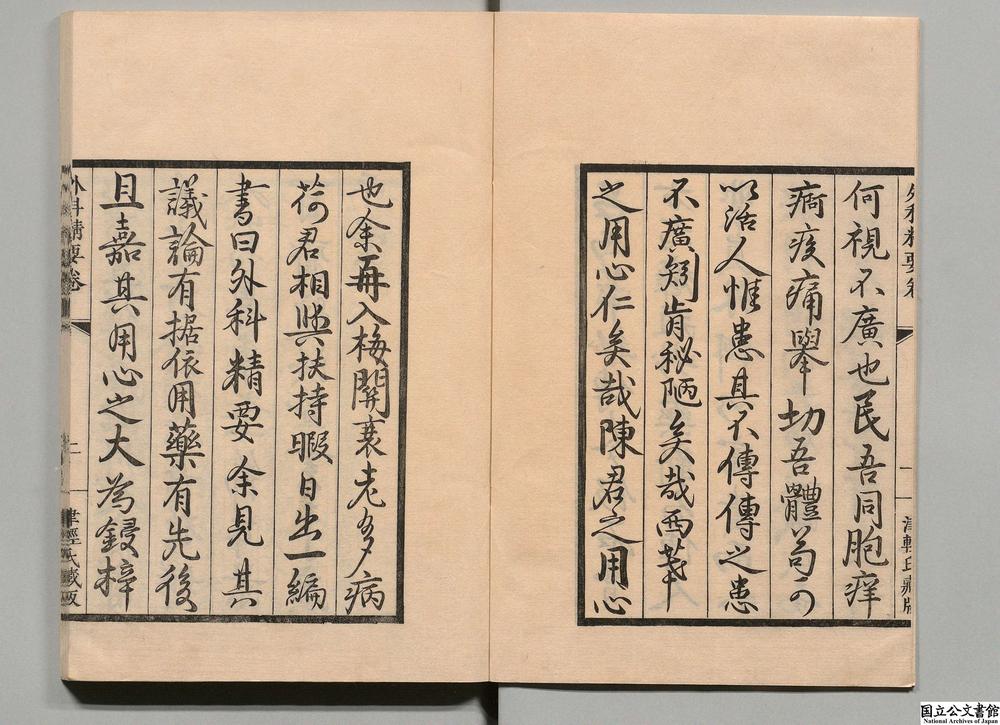 外科精要卷
一
津輕氏藏版
何視不廣也民吾同胞痒
痾疾痛舉切吾體苟可
以活人惟患其不傳傳之患
不廣矧肯秘陋矣哉西華
之用心仁矣哉陳君之用心
也余再入梅開衰老多病
荷君相與扶持暇日出一編
書曰外科精要余見其
議論有据依用藥有先後
且嘉其用心之大為鋟梓
外科精要卷
津輕氏藏版
国立公文書館
National Archives of Japan